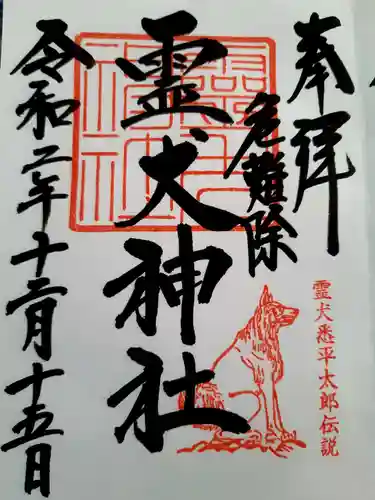 奉拝
危難除
霊犬神社
令和二年十二月十五日
霊犬悉平太郎伝説